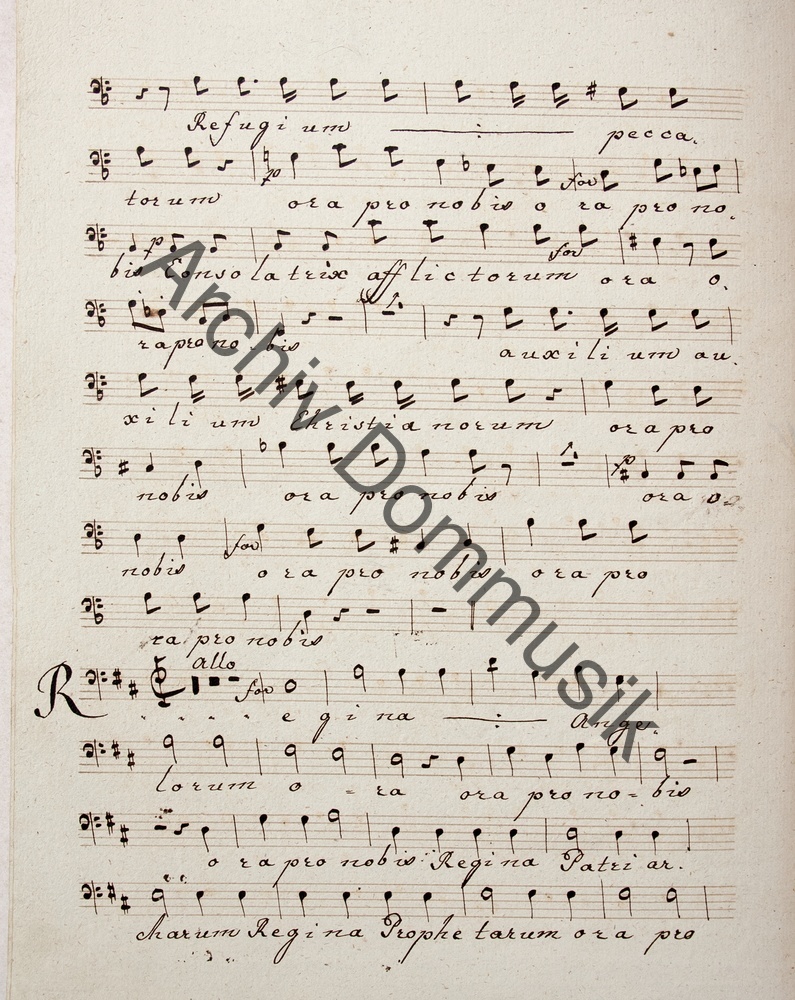 Refugi um pecca.
torum ora pro nobis o ra pro no.
bis Consolatrix afflictorum ora o.
rapro no bis auxi li um au.
xi li um Christia norum ora pro
nobis ora pro nobis ora o
nobis ora pro nobis ora pro
ra pro nobis
Allo
R e gi na Ange.
lorum o - ra ora pro no = bis
o ra pro nobis Regina Patri ar.
charum Regina Prophe tarum ora pro
Archiv Dommusik